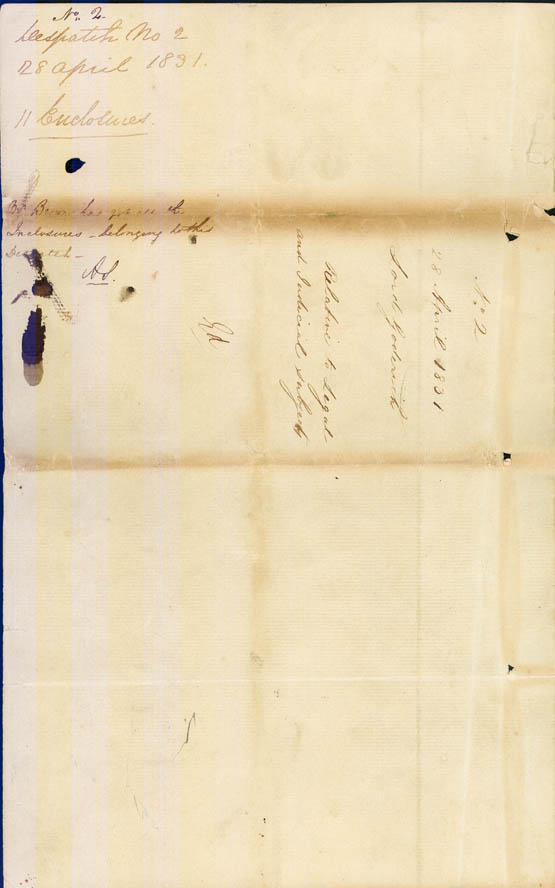 No. 2.
Despatch No 2
28 April 1831.
11 Enclosures.
Mr has got all the
Inclosures - belonging to this
Despatch -
No. 2
28 April 1831
Lord Goderich
Relative to Legal
and Judicial Subjects